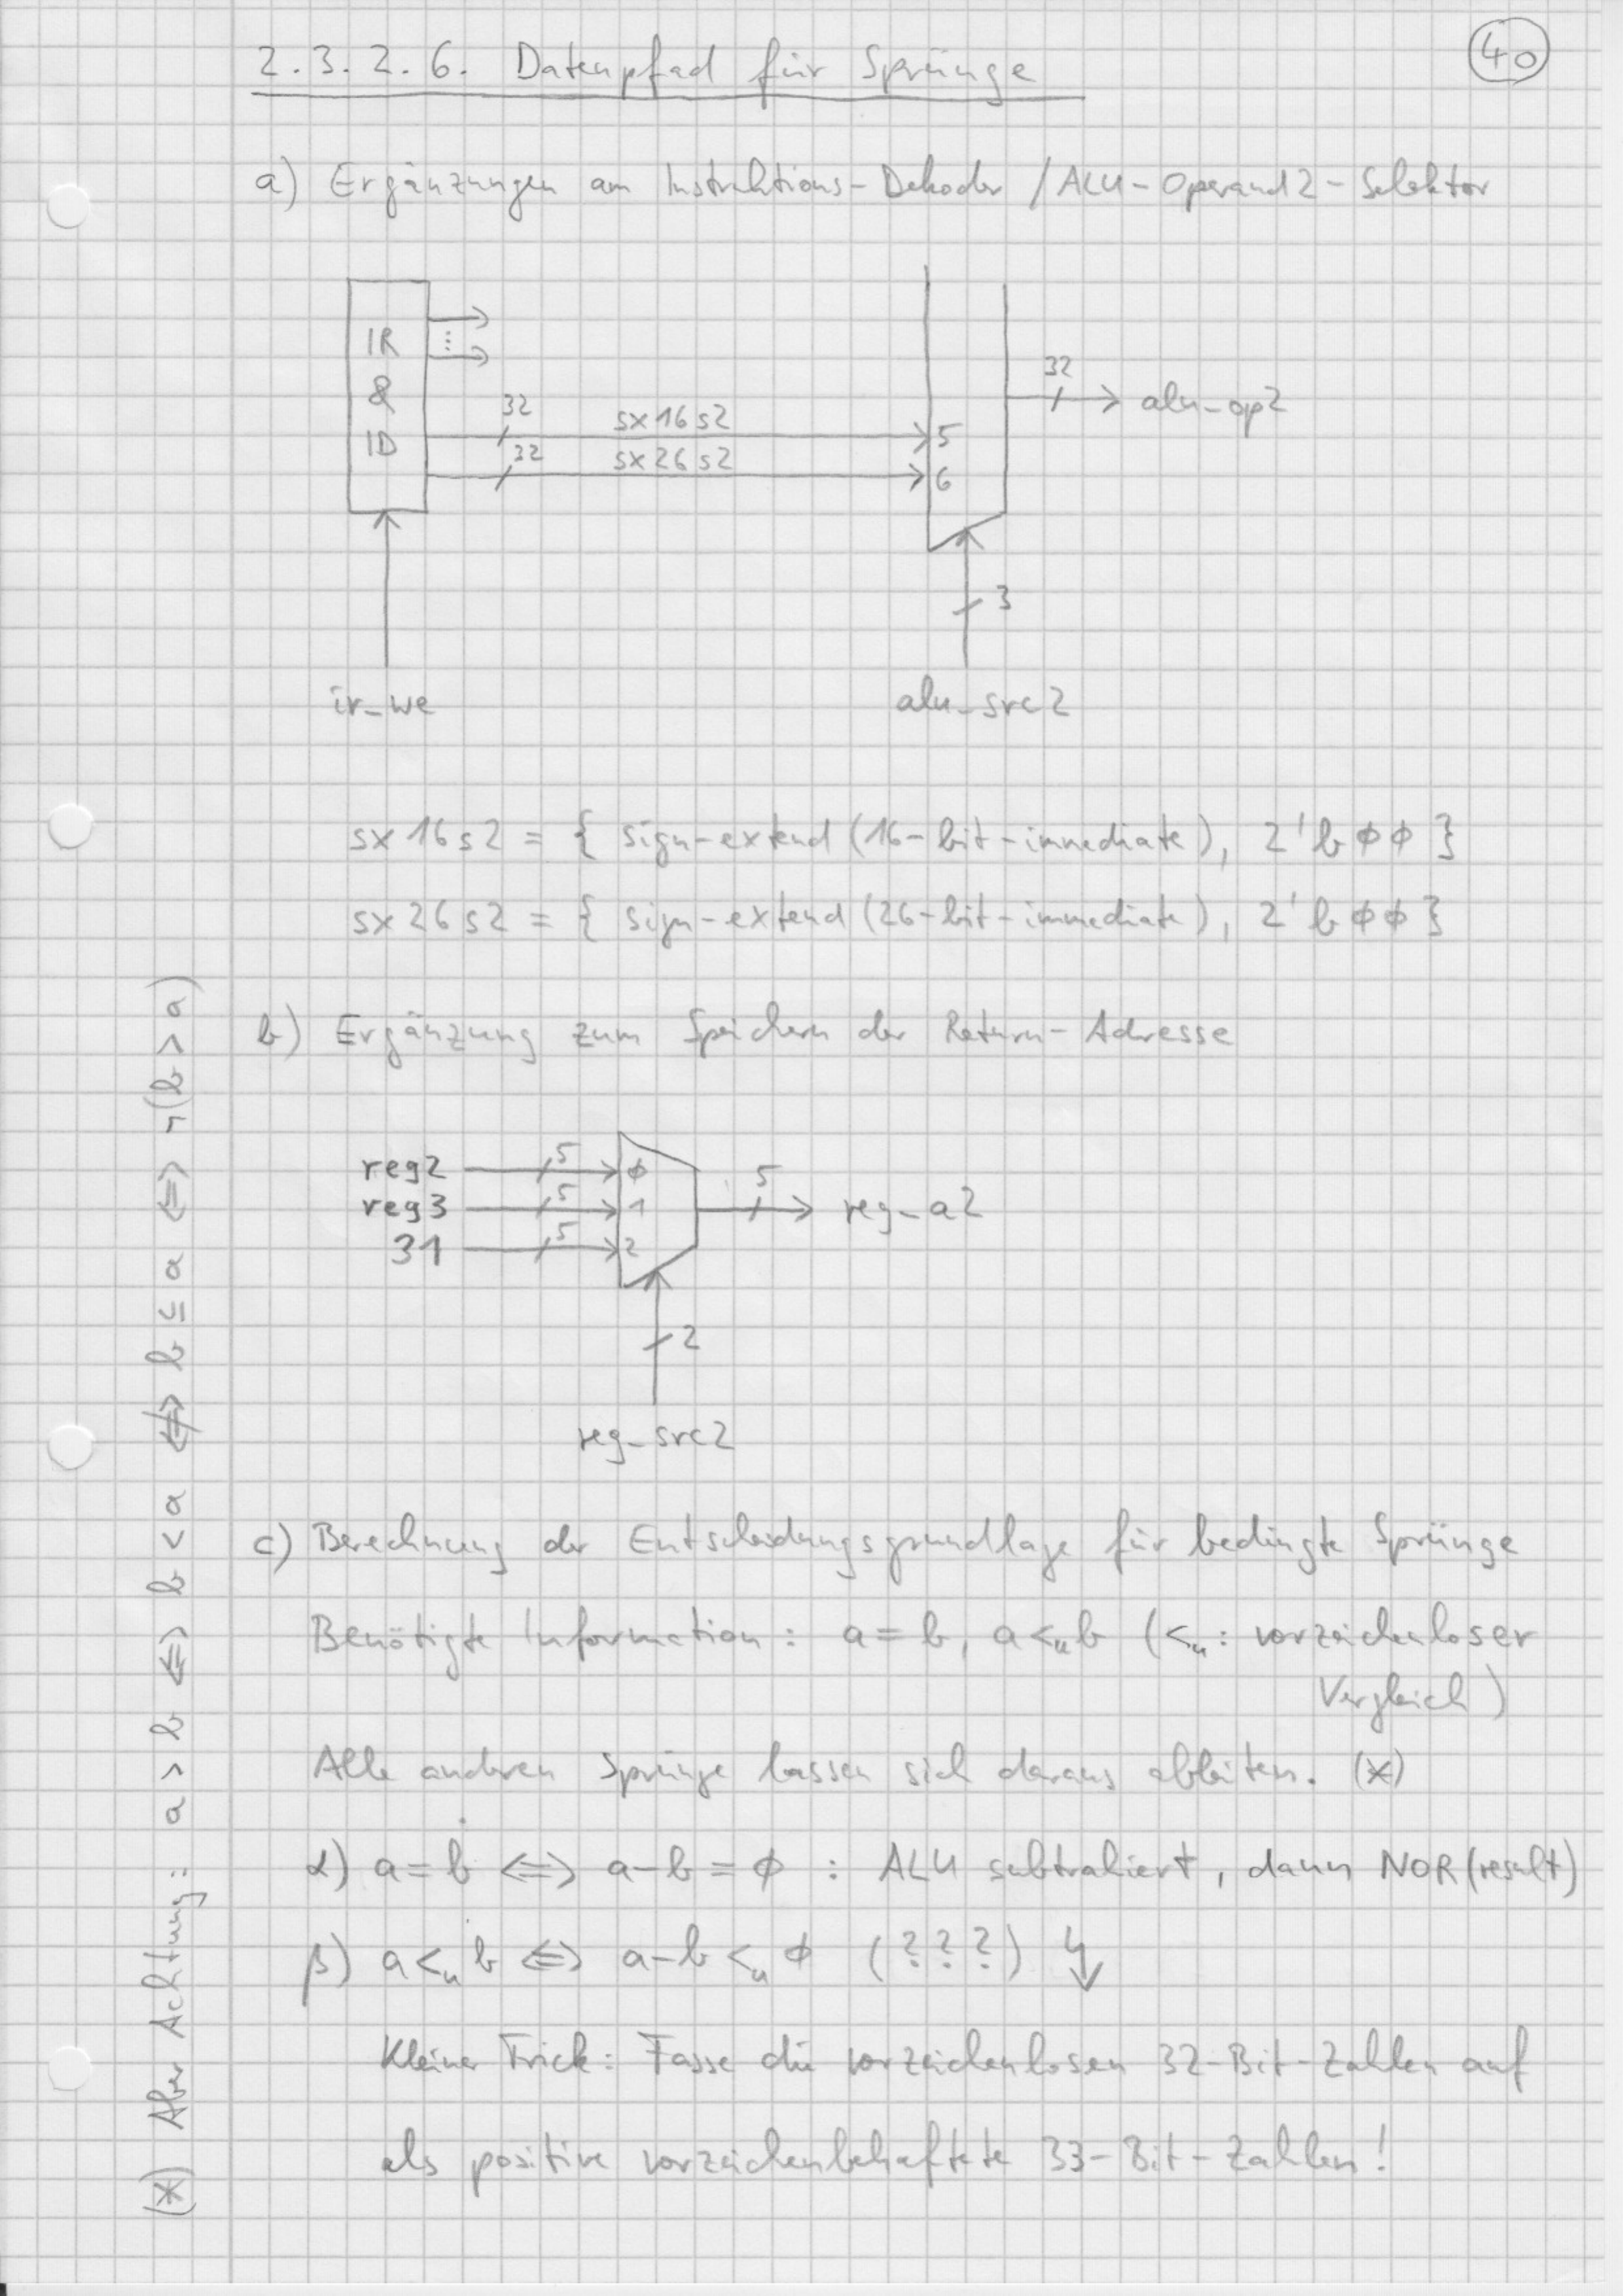 40
2.3.2.6. Datenpfad für Sprünge
a) Ergänzungen am Instruktions-Dekoder / ALU-Operand2-Selektor
IR
&
ID
32
sx16s2
5
32
sx26s2
6
32
alu_op2
3
ir_we
alu_src2
sx16s2 = { sign-extend (16-bit-immediate), 2'bϕϕ }
sx26s2 = { sign-extend (26-bit-immediate), 2'bϕϕ }
b) Ergänzung zum Speichern der Return-Adresse
reg2 5 ϕ
reg3 5 1
31 5 2
5 reg_a2
2
reg_src2
c) Berechnung der Entscheidungsgrundlage für bedingte Sprünge
Benötigte Information: a = b, a <ᵤ b (<ᵤ: vorzeichenloser
Vergleich)
Alle anderen Sprünge lassen sich daraus ableiten. (*)
α) a = b ⟺ a-b = ϕ : ALU subtrahiert, dann NOR(result)
β) a <ᵤ b ⟺ a-b <ᵤ ϕ (???) ↯
Kleiner Trick: Fasse die vorzeichenlosen 32-Bit-Zahlen auf
als positive vorzeichenbehaftete 33-Bit-Zahlen!
(*) Aber Achtung: a > b ⟺ b < a ⇎ b ≤ a ⟺ ¬(b > a)